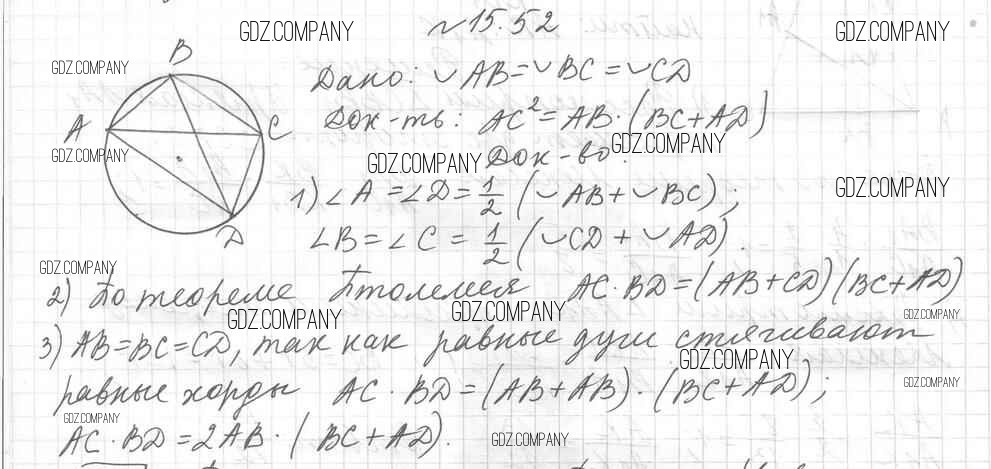 №15.52
GDZ.COMPANY GDZ.COMPANY
B
GDZ.COMPANY
Дано: ◡AB=◡BC=◡CD
A C
Док-ть: AC²=AB·(BC+AD)
GDZ.COMPANY GDZ.COMPANY Док-во: GDZ.COMPANY
1) ∠A=∠D=1/2(◡AB+◡BC); GDZ.COMPANY
D
∠B=∠C=1/2(◡CD+◡AD).
GDZ.COMPANY
2) По теореме Птолемея AC·BD=(AB+CD)(BC+AD)
GDZ.COMPANY GDZ.COMPANY GDZ.COMPANY
3) AB=BC=CD, так как равные дуги стягивают
GDZ.COMPANY
равные хорды AC·BD=(AB+AB)·(BC+AD);
GDZ.COMPANY
GDZ.COMPANY
AC·BD=2AB·(BC+AD).
GDZ.COMPANY